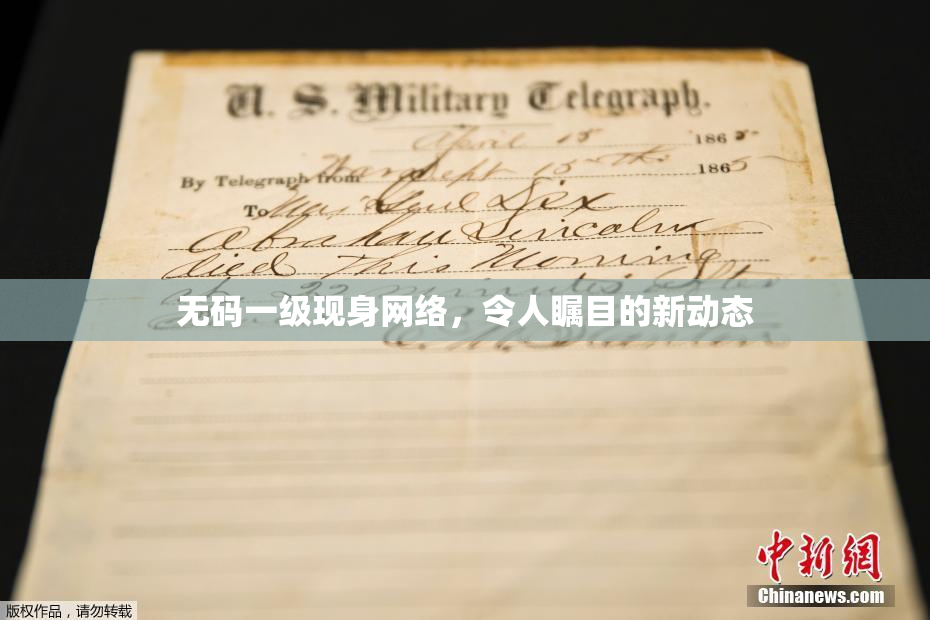 U. S. Military Telegraph.
April 15 1865
By Telegraph from War Dept 15th 1865
To Maj Genl Dix
Abraham Lincoln
died This Morning
at 22 minutes after
无码一级现身网络，令人瞩目的新动态
E. M. Stanton
中新网
Chinanews.com
版权作品，请勿转载